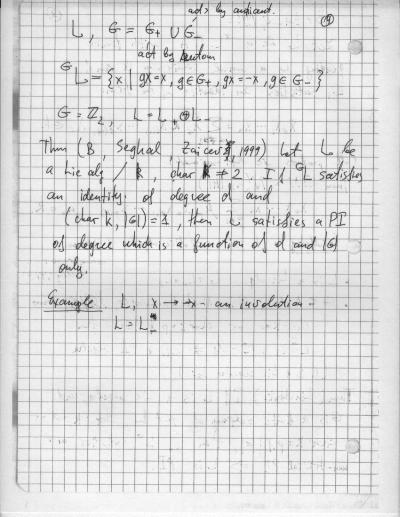 acts by antiaut.
L, G = G₊ ∪ G₋
act by autom
ᴳL = {x | gx=x, g∈G₊, gx=-x, g∈G₋}
G = ℤ₂, L = L₊⊕L₋
Thm (B, Seghal, Zaicev, 1999) Let L be
a Lie alg / k, char k ≠ 2. If ᴳL satisfies
an identity of degree d and
(char k, |G|) = 1, then L satisfies a PI
of degree which is a function of d and |G|
only.
Example L, x → -x - an involution -
L = L₋